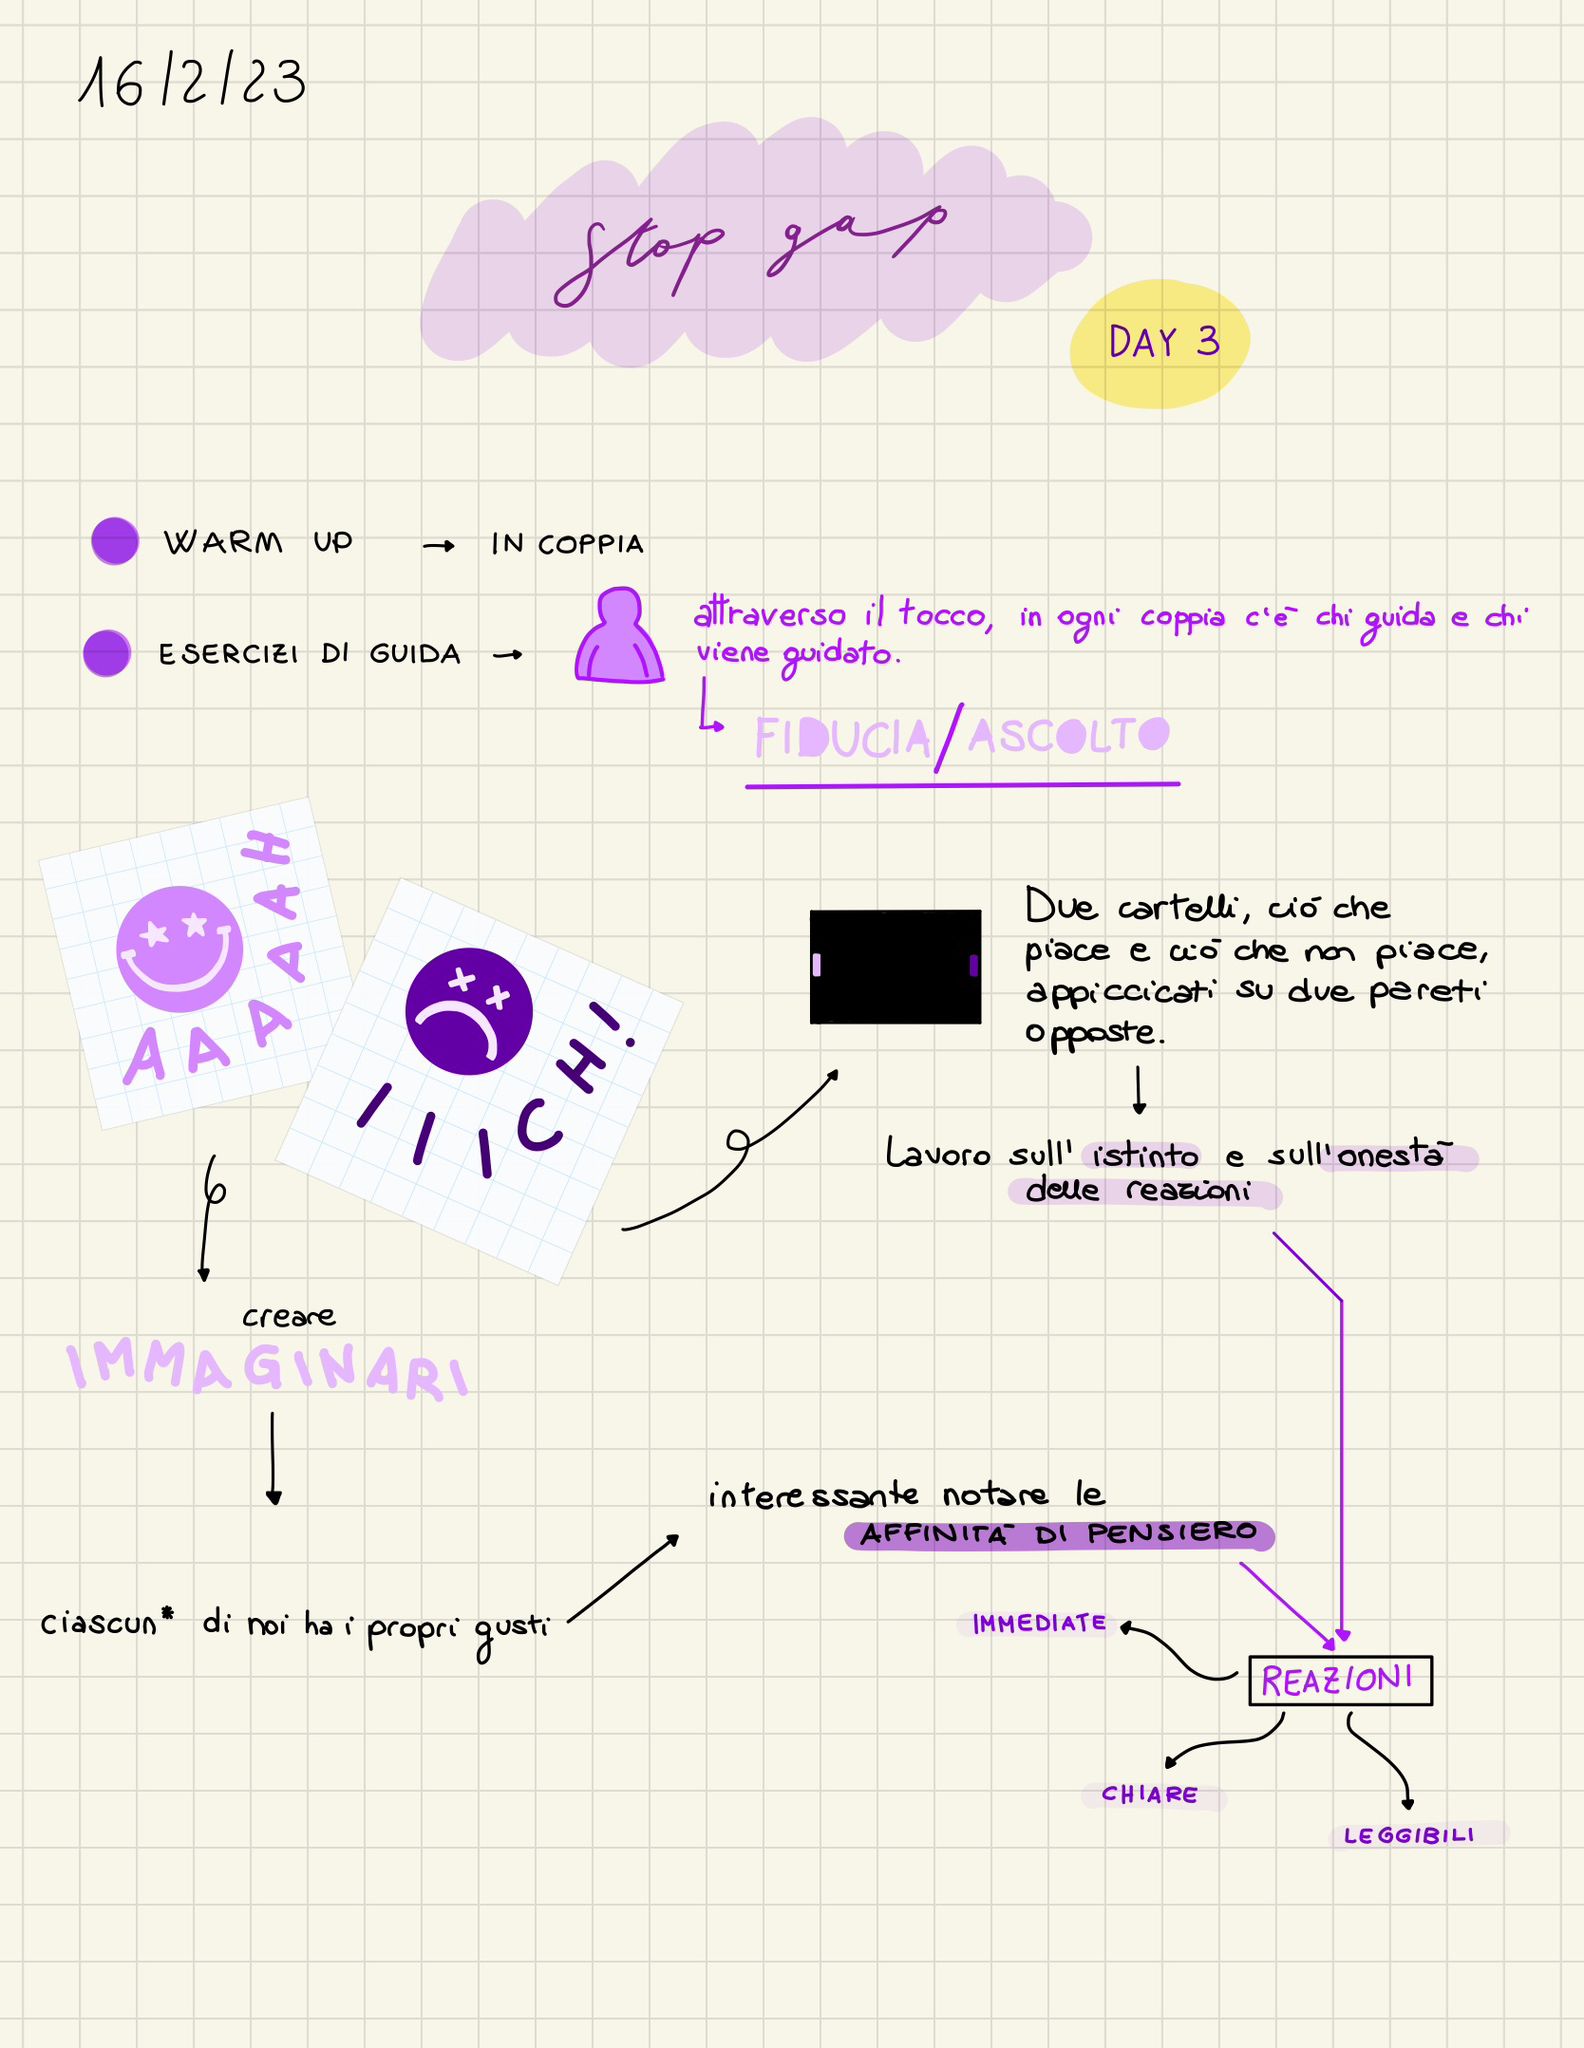 16/2/23
stop gap
DAY 3
WARM UP → IN COPPIA
ESERCIZI DI GUIDA →
attraverso il tocco, in ogni coppia c'è chi guida e chi
viene guidato.
FIDUCIA/ASCOLTO
AAAAAAH
IIICH!
Due cartelli, ciò che
piace e ciò che non piace,
appiccicati su due pareti
opposte.
Lavoro sull'istinto e sull'onestà
delle reazioni
creare
IMMAGINARI
interessante notare le
AFFINITÀ DI PENSIERO
ciascun* di noi ha i propri gusti
IMMEDIATE
REAZIONI
CHIARE
LEGGIBILI